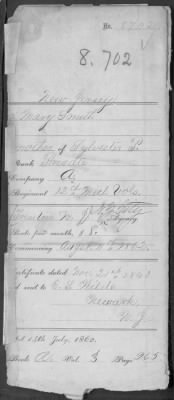 No. 8702
8.702
New Jersey
Mary Smith
mother of Sylvester S.
Rank Private
Company A,
Regiment 12th Vols.
Trenton N. J. Agency
Rate per month, 8.
Commencing 1862.
Certificate dated Nov. 20th 1863
and sent to C. S.
Newark,
N. J.
Act 14th July, 1862.
Book A. Vol. 3 Page 265